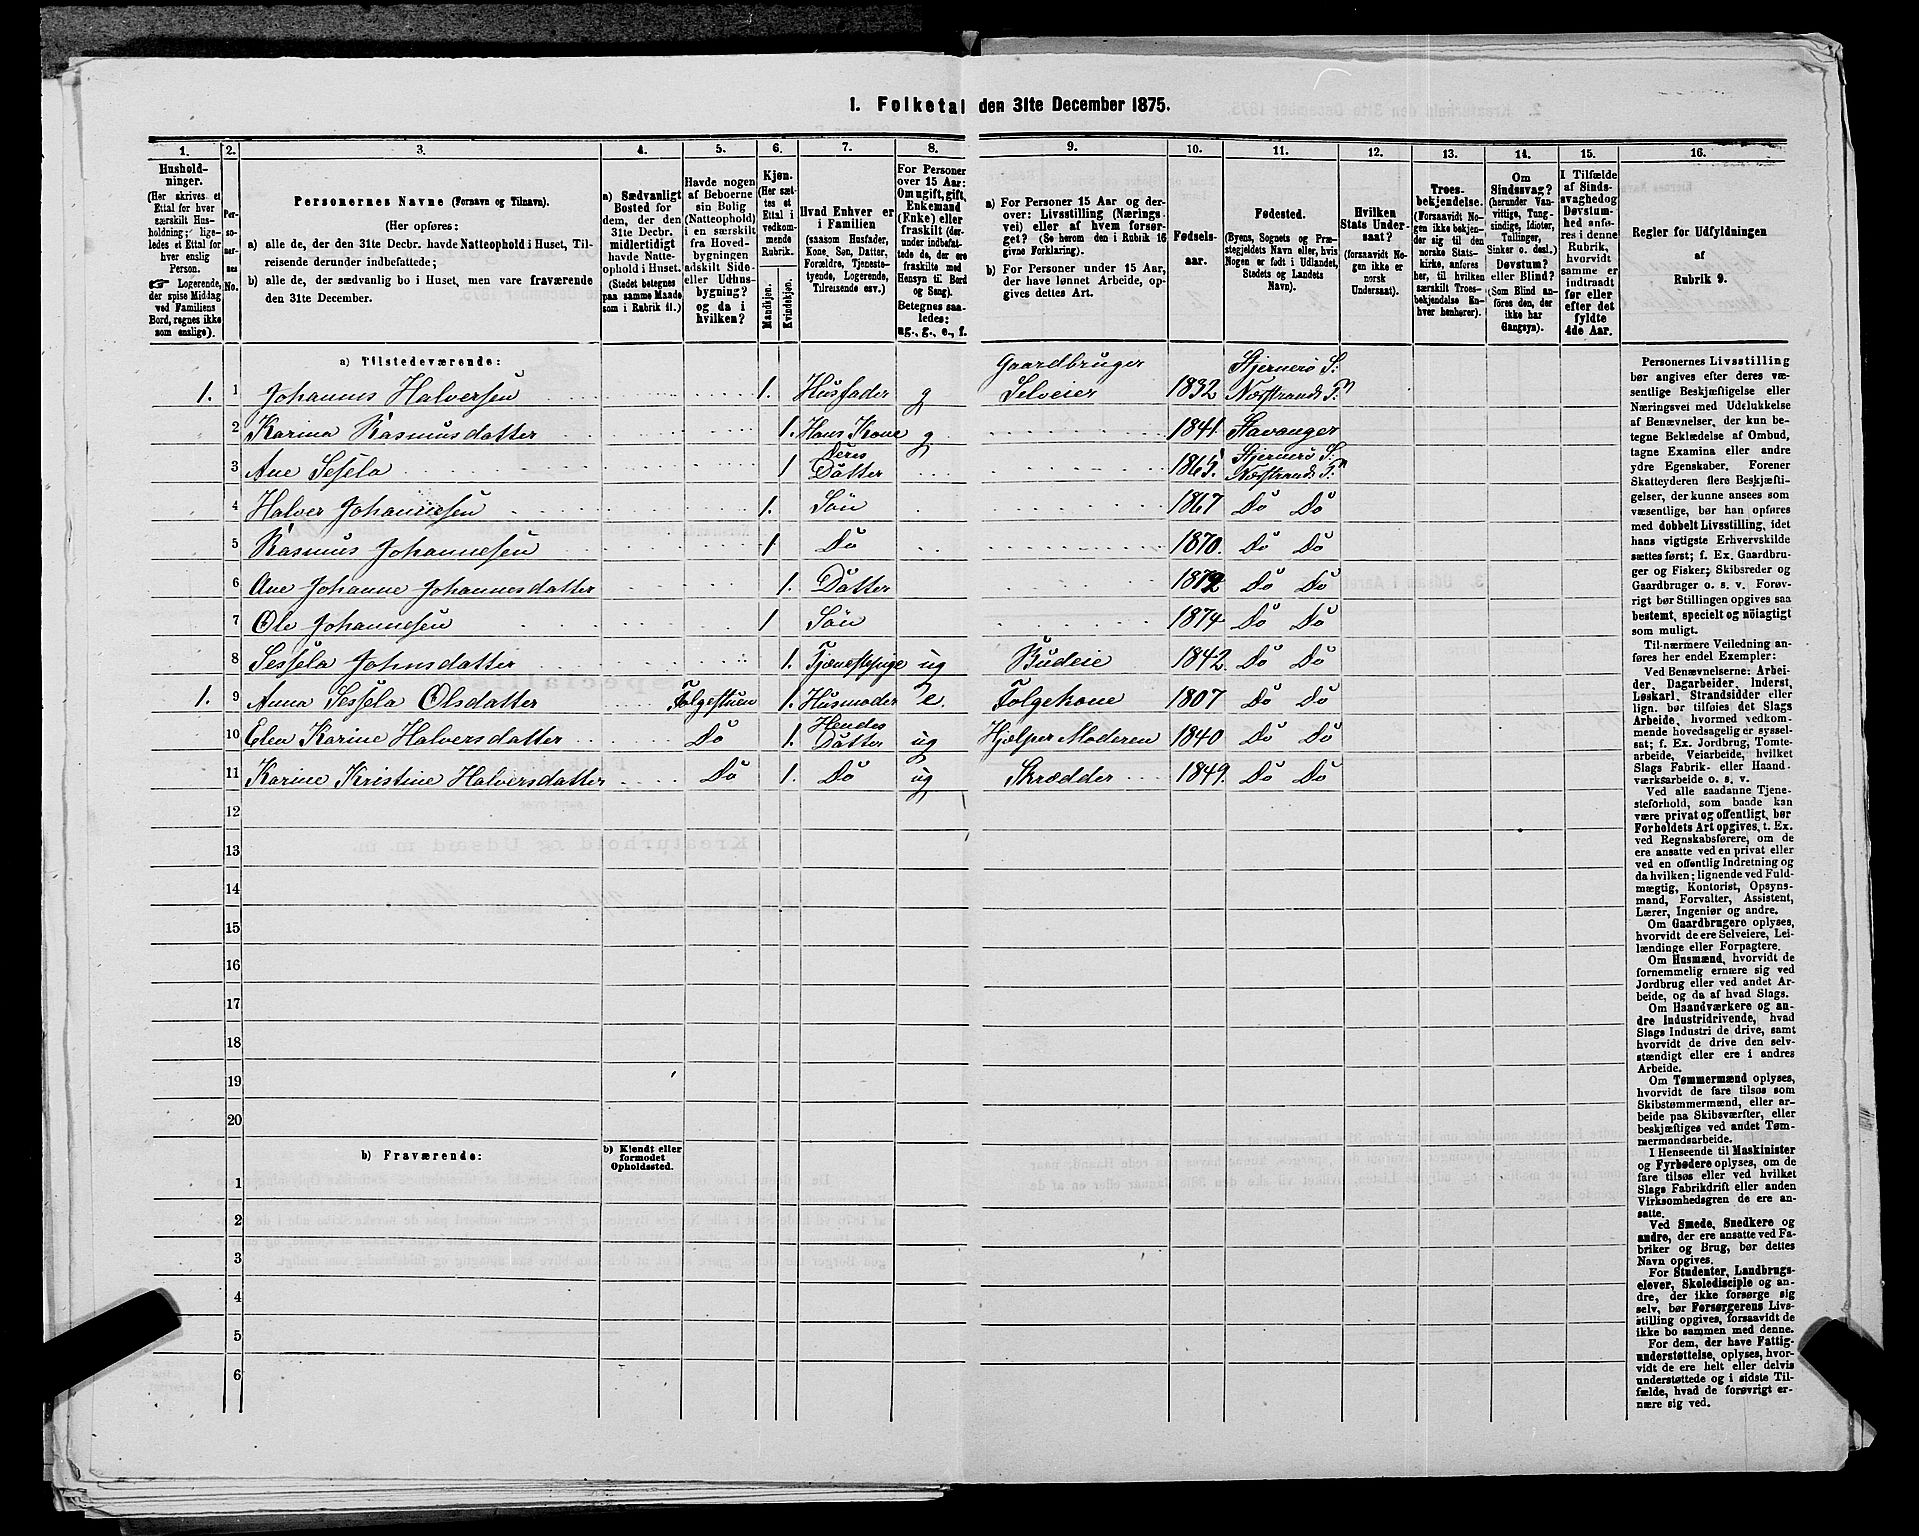 1. Folketal den 31te December 1875.
1. 2. 3. 4. 5. 6. 7. 8. 9. 10. 11. 12. 13. 14. 15. 16.
Husholdninger.
(Her skrives et
Ettal for hver
særskilt Husholdning;
ligeledes et Ettal for
hver enslig
Person.
☞ Logerende,
der spise Middag
ved Familiens
Bord, regnes ikke
som enslige).
Personernes No.
Personernes Navne (Fornavn og Tilnavn).
(Her opføres:
a) alle de, der den 31te Decbr. havde Natteophold i Huset, Tilreisende derunder indbefattede;
b) alle de, der sædvanlig bo i Huset, men vare fraværende
den 31te December.
a) Sædvanligt
Bosted for
dem, der den
31te Decbr.
midlertidigt
havde Natteophold i Huset.
(Stedet betegnes
paa samme Maade
som i Rubrik 11.)
Havde nogen
af Beboerne
sin Bolig
(Natteophold)
i en særskilt
fra Hovedbygningen
adskilt Side-
eller Udhusbygning?
og da i
hvilken?
Kjøn.
(Her sættes et
Ettal i
vedkommende
Rubrik.
Mandskjøn.
Kvindekjøn.
Hvad Enhver er
i Familien
(saasom Husfader,
Kone, Søn, Datter,
Forældre, Tjenestetyende, Logerende,
Tilreisende osv.)
For Personer
over 15 Aar:
Om ugift, gift,
Enkemand
(Enke) eller
fraskilt (derunder indbefattede de, der ere
fraskilte med
Hensyn til Bord
og Seng).
Betegnes saaledes:
ug., g., e., f.
a) For Personer 15 Aar og derover: Livsstilling (Næringsvei) eller af hvem forsørget? (Se herom den i Rubrik 16
givne Forklaring).
b) For Personer under 15 Aar,
der have lønnet Arbeide, opgives dettes Art.
Fødselsaar.
Fødested.
(Byens, Sognets og Præstegjeldets Navn eller, hvis
Nogen er født i Udlandet,
Stedets og Landets
Navn).
Hvilken
Stats Undersaat?
(forsaavidt Nogen ikke er
norsk
Undersaat).
Troesbekjendelse.
(Forsaavidt Nogen ikke bekjender sig til den
norske Statskirke, anføres
her, til hvilken
særskilt Troesbekjendelse Enhver henhører).
Om
Sindssvag?
(herunder Vanvittige, Tungsindige, Idioter,
Tullinger,
Sinker o. desl.).
Døvstum?
eller Blind?
(Som Blind anføres den, der
ikke har
Gangsyn).
I Tilfælde
af Sindssvaghed og
Døvstumhed anføres i denne
Rubrik,
hvorvidt
samme er
indtraadt
før eller
efter det
fyldte
4de Aar.
Regler for Udfyldningen
af
Rubrik 9.
a) Tilstedeværende:
1. 1 Johannes Halversen 1. Husfader g Gaardbruger Selveier 1832 Stjernerö S: Næstrands P:
2 Karina Rasmusdatter 1. Hans Kone g 1841. Stavanger
3 Ane Sesela 1 Deres Datter 1865. Stjernerö S: Næstrands P:
4 Halver Johannesen 1. Sön 1867 Do Do
5 Rasmus Johannesen 1 Do 1870. Do Do
6 Ane Johanne Johannesdatter 1. Datter 1872 Do Do
7 Ole Johannesen 1 Sön 1874 Do Do
8 Sessela Johnsdatter 1. Tjenestepige ug Budeie 1842 Do Do
1. 9 Anna Sessela Olsdatter Folgestuen 1. Husmoder e. Folgekone 1807 Do Do
10 Elen Karine Halversdatter Do 1. Hendes Datter ug Hjelper Moderen 1840 Do Do
11 Karine Kristine Halversdatter Do 1. Do ug Skrædder 1849. Do Do
12
13
14
15
16
17
18
19
20
b) Fraværende:
b) Kjendt eller
formodet
Opholdssted.
1
2
3
4
5
6
Personernes Livsstilling
bør angives efter deres væsentlige Beskjæftigelse eller
Næringsvei med Udelukkelse
af Benævnelser, der kun betegne Beklædelse af Ombud,
tagne Examina eller andre
ydre Egenskaber. Forener
Skatteyderen flere Beskjæftigelser, der kunne ansees som
væsentlige, bør han opføres
med dobbelt Livsstilling, idet
hans vigtigste Erhvervskilde
sættes først; f. Ex. Gaardbruger og Fisker; Skibsreder og
Gaardbruger o. s. v. Forøvrigt bør Stillingen opgives saa
bestemt, specielt og nöiagtigt
som muligt.
Til nærmere Veiledning anføres her endel Exempler:
Ved Benævnelserne: Arbeider, Dagarbeider, Inderst,
Løskarl, Strandsidder eller
lign. bør tilføies det Slags
Arbeide, hvormed vedkommende hovedsagelig er sysselsat; f. Ex. Jordbrug, Tomtearbeide, Veiarbeide, hvilket
Slags Fabrik- eller Haandværksarbeide o. s. v.
Ved alle saadanne Tjenesteforhold, som baade kan
være privat og offentligt, bør
Forholdets Art opgives, t. Ex.
ved Regnskabsførere, om de
ere ansatte ved en privat eller
ved en offentlig Indretning og
da hvilken; lignende ved Fuldmægtig, Kontorist, Opsynsmand, Forvalter, Assistent,
Lærer, Ingeniør og andre.
Om Gaardbrugere oplyses,
hvorvidt de ere Selveiere, Leilændinge eller Forpagtere.
Om Husmænd, hvorvidt de
fornemmelig ernære sig ved
Jordbrug eller ved andet Arbeide, og da af hvad Slags.
Om Haandværkere og andre Industridrivende, hvad
Slags Industri de drive, samt
hvorvidt de drive den selvstændigt eller ere i andres
Arbeide.
Om Tømmermænd oplyses,
hvorvidt de fare tilsøs som
Skibstømmermænd, eller arbeide paa Skibsværfter, eller
beskjæftiges ved andet Tømmermandsarbeide.
I Henseende til Maskinister
og Fyrbødere oplyses, om de
fare tilsøs eller ved hvilket
Slags Fabrikdrift eller anden
Virksomhedsgren de ere ansatte.
Ved Smede, Snedkere og
andre, der ere ansatte ved Fabriker og Brug, bør dettes
Navn opgives.
For Studenter, Landbrugselever, Skoledisciple og andre, der ikke forsørge sig
selv, bør Forsørgerens Livsstilling opgives, forsaavidt de
ikke bo sammen med denne.
For dem, der have Fattigunderstøttelse, oplyses, hvorvidt de ere helt eller delvis
understøttede og i sidste Tilfælde, hvad de forøvrigt ernære sig ved.